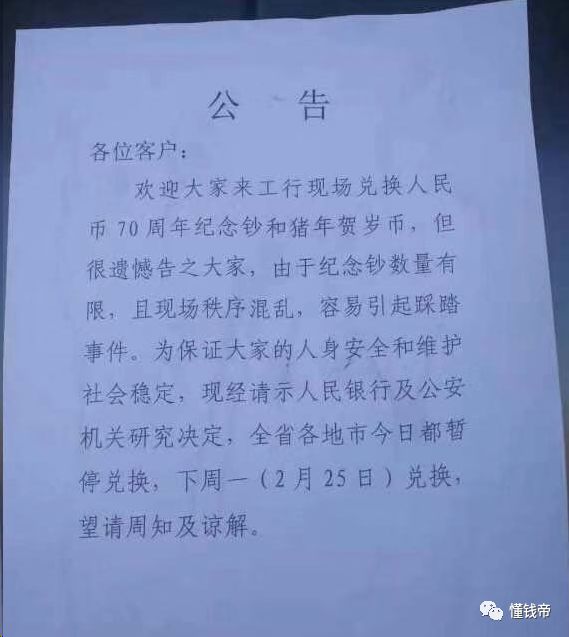 公 告
各位客户：
欢迎大家来工行现场兑换人民
币 70 周年纪念钞和猪年贺岁币，但
很遗憾告之大家，由于纪念钞数量有
限，且现场秩序混乱，容易引起踩踏
事件。为保证大家的人身安全和维护
社会稳定，现经请示人民银行及公安
机关研究决定，全省各地市今日都暂
停兑换，下周一（2 月 25 日）兑换，
望请周知及谅解。
懂钱帝